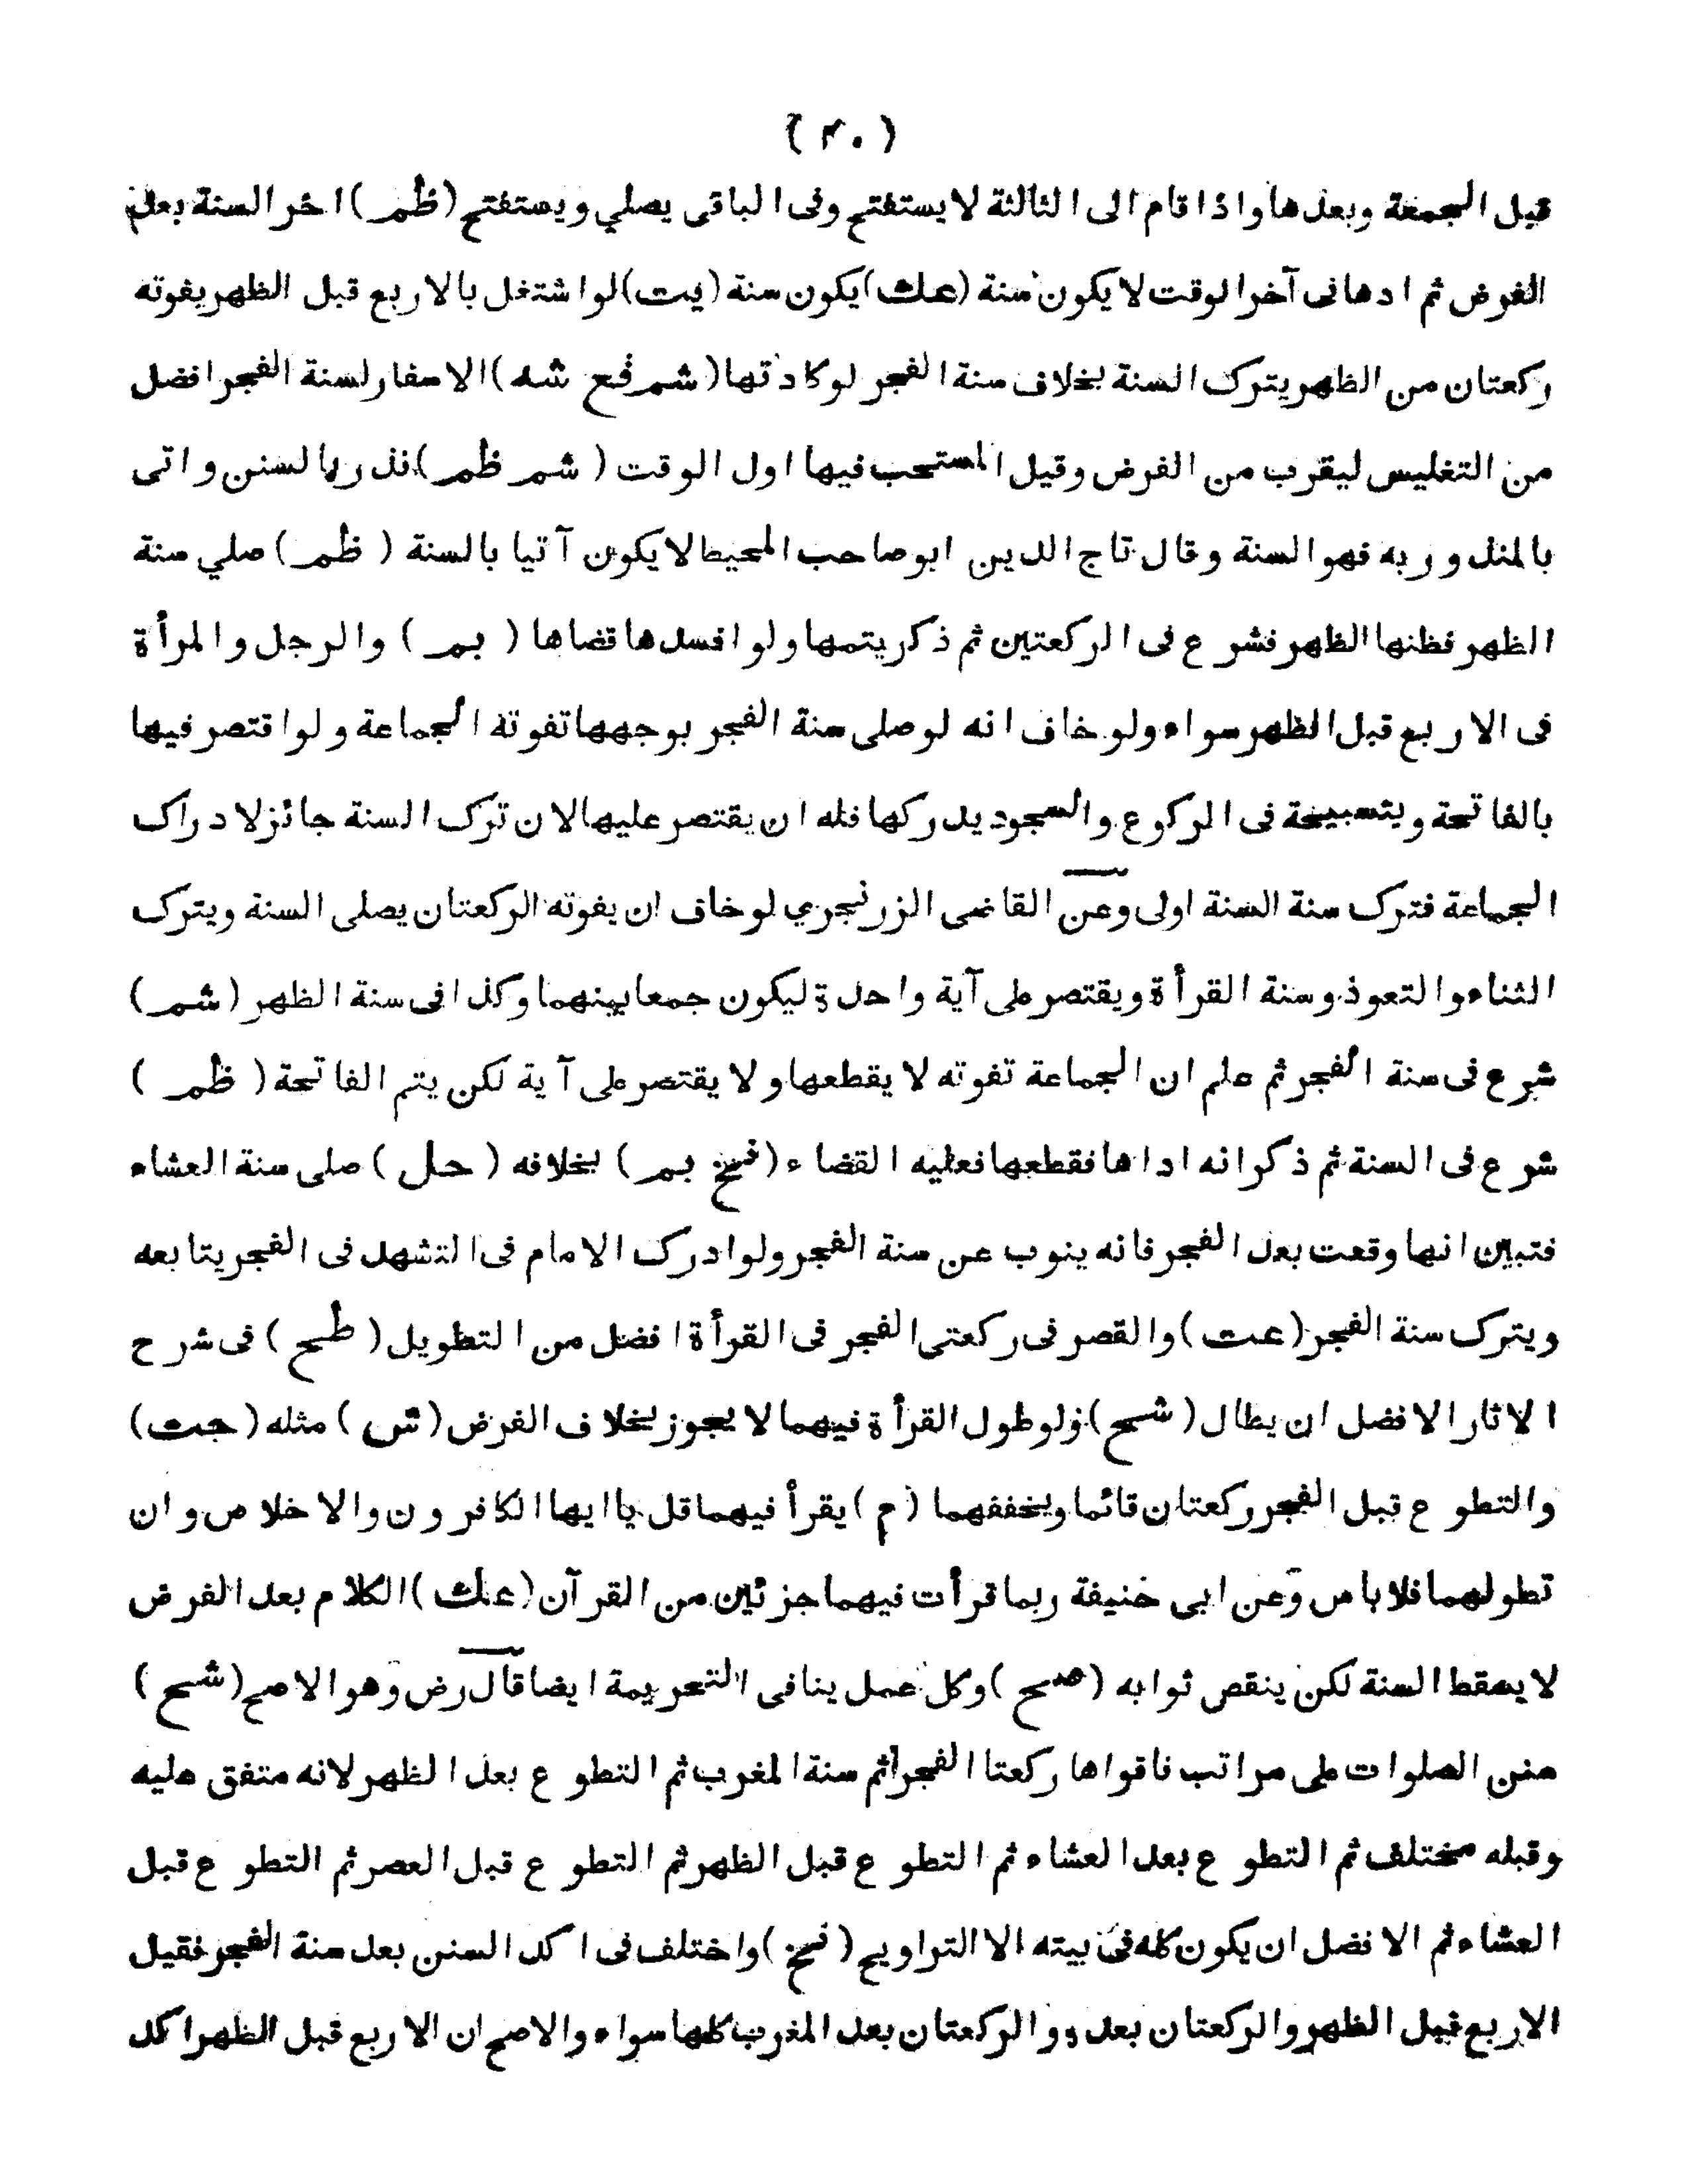 ( ٣٠ )
قبل الجمعة وبعدها واذا قام الى الثالثة لا يستفتح وفى الباقى يصلي ويستفتح (ظم) اخر السنة بعد
الفرض ثم ادها فى آخر الوقت لا يكون سنة (عك) يكون سنة (يت) لو اشتغل بالاربع قبل الظهر يفوته
ركعتان من الظهر يترك السنة بخلاف سنة الفجر لوكادتها (شم فع شه) الاسفار لسنة الفجر افضل
من التغليس ليقرب من الفرض وقيل المستحب فيها اول الوقت (شم ظم) نذر بالسنن واتى
بالمنذور به فهو السنة وقال تاج الدين ابو صاحب المحيط لا يكون آتيا بالسنة (ظم) صلي سنة
الظهر فظنها الظهر فشرع فى الركعتين ثم ذكر يتمها ولو افسدها قضاها (بم) والرجل والمرأة
فى الاربع قبل الظهر سواء ولو خاف انه لو صلى سنة الفجر بوجهها تفوته الجماعة ولو اقتصر فيها
بالفاتحة وبتسبيحة فى الركوع والسجود يدركها فله ان يقتصر عليها لان ترك السنة جائز لادراك
الجماعة فترك سنة السنة اولى وعن القاضى الزرنجري لو خاف ان يفوته الركعتان يصلى السنة ويترك
الثناء والتعوذ وسنة القرأة ويقتصر على آية واحدة ليكون جمعا بينهما وكذا فى سنة الظهر (شم)
شرع فى سنة الفجر ثم علم ان الجماعة تفوته لا يقطعها ولا يقتصر على آية لكن يتم الفاتحة (ظم)
شرع فى السنة ثم ذكر انه اداها فقطعها فعليه القضاء (فخ بم) بخلافه (حل) صلى سنة العشاء
فتبين انها وقعت بعد الفجر فانه ينوب عن سنة الفجر ولو ادرك الامام فى التشهد فى الفجر يتابعه
ويترك سنة الفجر (عت) والقصر فى ركعتى الفجر فى القرأة افضل من التطويل (طح) فى شرح
الاثار الافضل ان يطال (شح) ولو طول القرأة فيهما لا يجوز بخلاف الفرض (ش) مثله (جت)
والتطوع قبل الفجر ركعتان قائما ويخففهما (م) يقرأ فيهما قل يا ايها الكافرون والاخلاص وان
تطولهما فلا باس وعن ابى حنيفة ربما قرأت فيهما جزئين من القرآن (عك) الكلام بعد الفرض
لا يسقط السنة لكن ينقص ثوابه (صح) وكل عمل ينافى التحريمة ايضا قال رض وهو الاصح (شح)
سنن الصلوات على مراتب فاقواها ركعتا الفجر ثم سنة المغرب ثم التطوع بعد الظهر لانه متفق عليه
وقبله مختلف ثم التطوع بعد العشاء ثم التطوع قبل الظهر ثم التطوع قبل العصر ثم التطوع قبل
العشاء ثم الافضل ان يكون كله فى بيته الا التراويح (فخ) واختلف فى اكد السنن بعد سنة الفجر فقيل
الاربع قبل الظهر والركعتان بعده والركعتان بعد المغرب كلها سواء والاصح ان الاربع قبل الظهر اكد